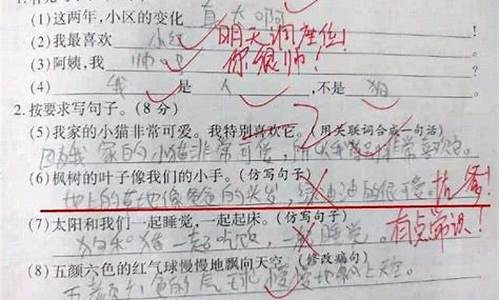 (1)这两年,小区的变化 真大啊
(2)我最喜欢 小红 明天调座位!
(3)阿姨,我 帅吧 你很帅!
(4) 我 是 人 ,不是 狗
2.按要求写句子。(8 分)
(5)我家的小猫非常可爱。我特别喜欢它。(用关联词合成一句话)
因为我家的小猫非常可爱,所以我非常喜欢它。
(6)枫树的叶子像我们的小手。(仿写句子)
地上的草地像爸爸的头发, 抗争!
(7)太阳和我们一起睡觉,一起起床。(仿写句子)
狗和猪一起吃饭,一起睡觉。 有点常识!
(8)五颜六色的红气球慢慢地飘向天空。(修改病句)
五颜六色的气球慢慢地飘上天空。